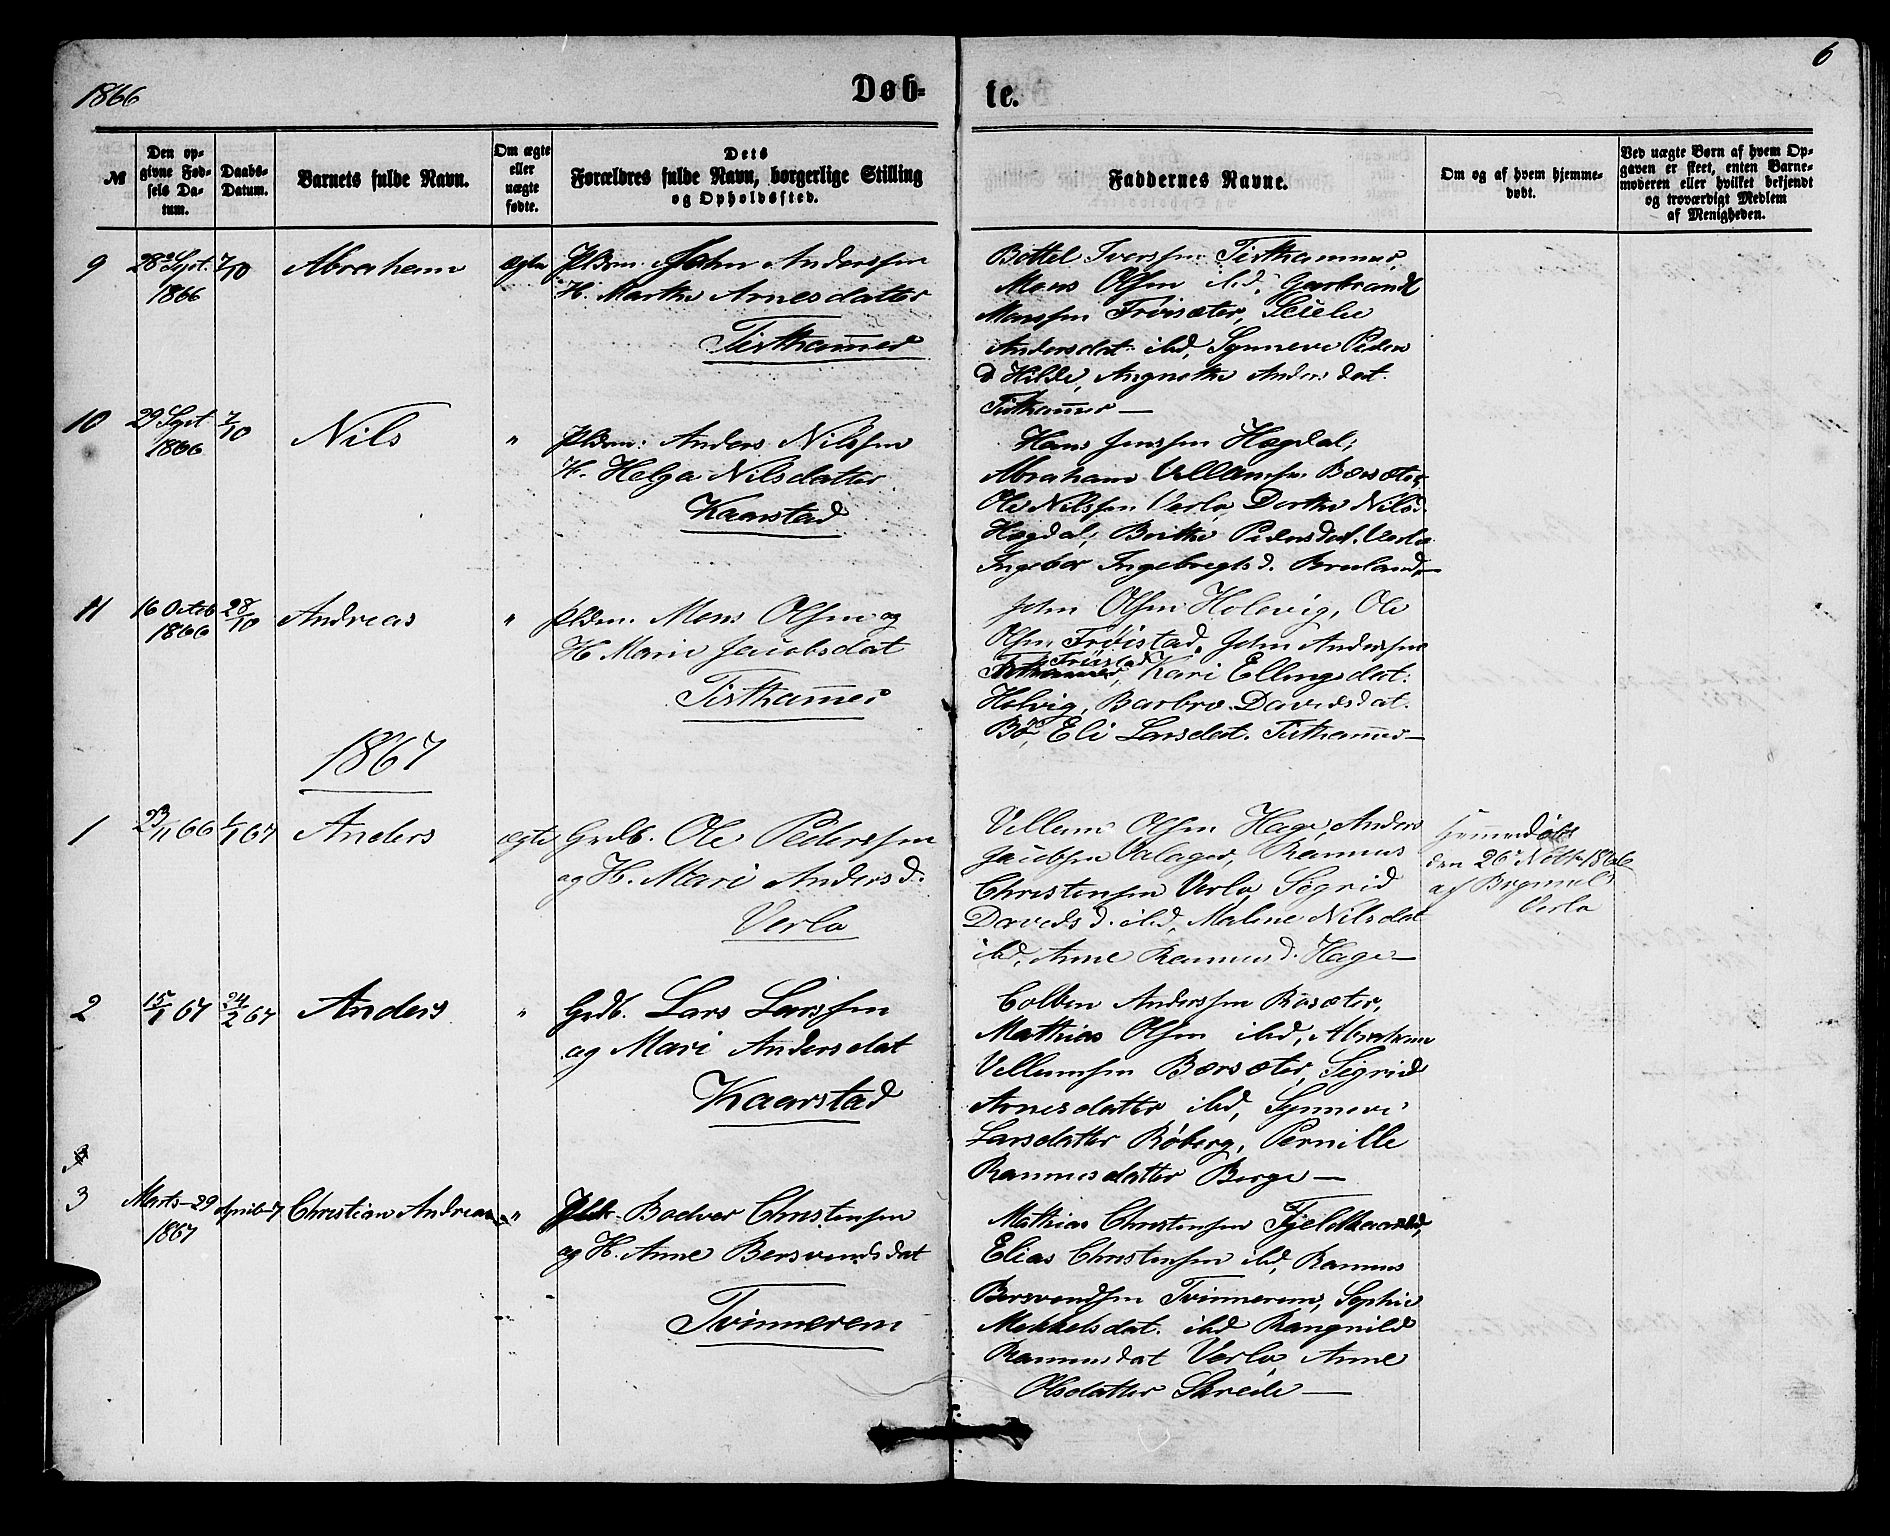 1866
Døb-
te.
6
№
Den op-
givne Fød-
sels Da-
tum.
Daabs-
Datum.
Barnets fulde Navn.
Om ægte
eller
uægte
fødte.
Dets
Forældres fulde Navn, borgerlige Stilling
og Opholdssted.
Faddernes Navne.
Om og af hvem hjemme-
døbt.
Ved uægte Børn af hvem Op-
gaven er skeet, enten Barne-
moderen eller hvilket bekjendt
og troværdigt Medlem
af Menigheden.
9
28 Sept.
1866
7/10
Abraham
ægte
Pldm. John Anderssen
H. Marthe Arnesdatter
Tisthammer
Bottel Iverssen Tisthammer,
Mons Olsen ibd, Garbrandt
Monssen Frøisæter, Scielie
Andersdat. ibd, Synneve Peders
d Hilde, Angnethe Andersdat.
Tisthammer —
10
29 Sept
1866
7/10
Nils
"
Pldm: Anders Nilssen
H. Helga Nilsdatter
Kaarstad
Hans Jenssen Hægdal,
Abraham Vellumsen Bærsæter,
Ole Nilssen Verlo, Dorthe Nilsd.
Hægdal, Brithe Pedersdat. Verlo
Ingebor Ingebregtsd. Bruland —
11
16 Octob
1866
28/10
Andreas
"
Pldm. Mons Olsen og
H. Mari Jacobsdat
Tisthammer
John Olsen Holevig, Ole
Olsen Frøistad, John Anderssen
Frøistad
Tisthammer, Kari Ellingsdat.
Holvig, Barbro Davidsdat.
Bø, Eli Larsdat. Tisthammer —
1867
1
23/11 66
1/1 67
Anders
ægte
Grdb. Ole Pederssen
og H. Mari Andersd.
Verlo
Vellum Olsen Hage, Anders
Jacobsen Valager, Rasmus
Christensen Verlo, Sigrid
Davidsd. ibd, Malene Nilsdat
ibd, Anne Rasmusd. Hage —
Hjemmedøbt
den 26 Novbr 1866
af Brynnild
Verlo
2
15/1 67
24/2 67
Anders
"
Grdb. Lars Larssen
og Mari Andersdat
Kaarstad
Colben Anderssen Røsæter,
Mathias Olsen ibd, Abraham
Vellumsen Bærsæter, Sigrid
Arnesdatter ibd, Synneve
Larsdatter Røberg, Pernille
Rasmusdatter Berge —
3
3
Marts 29
1867
April 7
Christian Andreas
"
Bodver Christensen
og H. Anne Bersvendsdat
Tvinnerem
Mathias Christensen Fjeldkaarstad,
Elias Christensen ibd, Rasmus
Bersvendsen Tvinnerem, Sophie
Mekkelsdat. ibd Rangnild
Rasmusdat Verlo, Anne
Olsdatter Skrede —